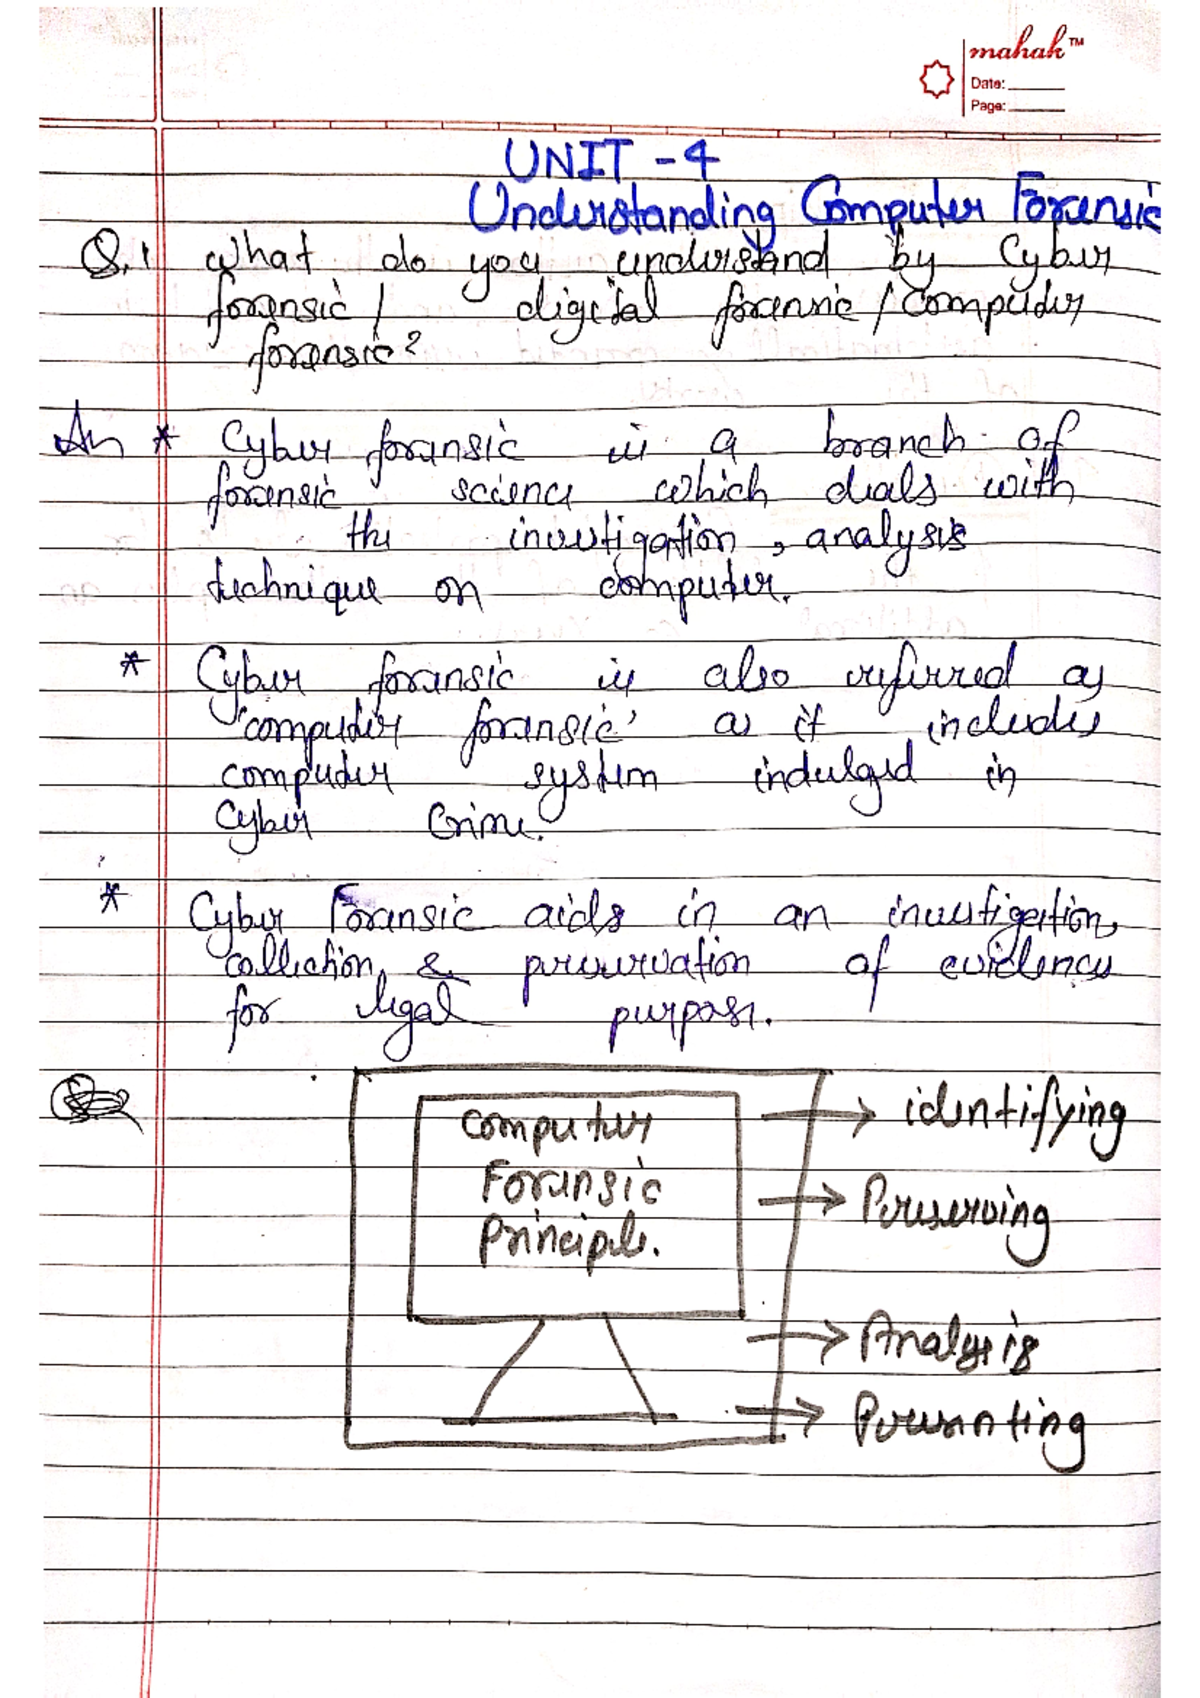 mahak™
Date:
Page:
UNIT - 4
Understanding Computer Forensic
Q.1 What do you understand by Cyber
forensic / digital forensic / Computer
forensic?
An * Cyber forensic is a branch of
forensic science which deals with
the investigation, analysis
technique on computer.
* Cyber forensic is also referred as
'computer forensic' as it includes
computer system indulged in
Cyber Crime.
* Cyber Forensic aids in an investigation,
collection, & preservation of evidence
for legal purpose.
Computer
Forensic
Principle.
→ identifying
→ Preserving
→ Analysis
→ Presenting